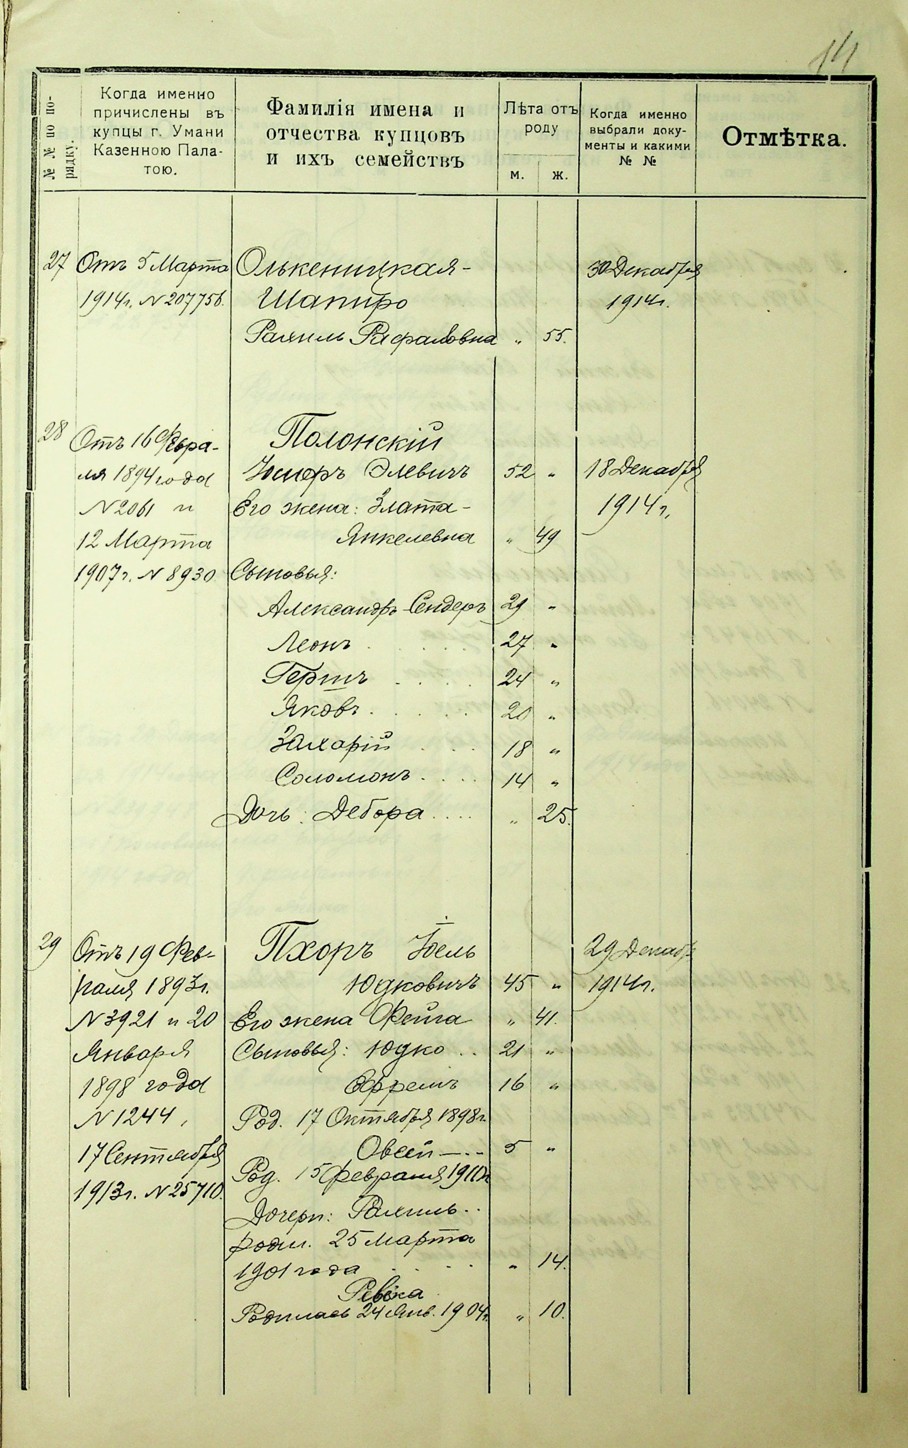 14
№ № по по-
рядку.
Когда именно
причислены въ
купцы г. Умани
Казенною Пала-
тою.
Фамилія имена и
отчества купцовъ
и ихъ семействъ
Лѣта отъ
роду
м. ж.
Когда именно
выбрали доку-
менты и какими
№ №
Отмѣтка.
27 Отъ 5 Марта Олькеницкая- 30 Декабря
1914г. N 207756. Шапиро 1914г.
Рахиль Рафаловна „ 55.
28 Отъ 16 Февра- Полонскій
ля 1894 года Хаимъ Элевичъ 52 „ 18 Декабря
N 2061 и Его жена: Злата- 1914г.
12 Марта Янкелевна „ 49
1907г. N 8930 Сыновья:
Александръ-Сендеръ 29 „
Леонъ 27 „
Гершъ 24 „
Яковъ 20 „
Захарій 18 „
Соломонъ 14 „
Дочь: Дебора „ 25.
29 Отъ 19 Фев- Пхоръ Іоель 29 Декабр
раля 1893г. Юдковичъ 45 „ 1914г.
N 3921 и 20 Его жена Фейга „ 41.
Января Сыновья: Юдко 21 „
1898 года Ефремъ 16 „
N 1244, Род. 17 Октября 1898г.
17 Сентября Овсей 5 „
1913г. N 25710. Род. 15 Февраля 1910г.
Дочери: Рахиль
родил. 25 Марта
1901 года „ 14.
Ревека
Родилась 24 Янв. 1904г. „ 10.